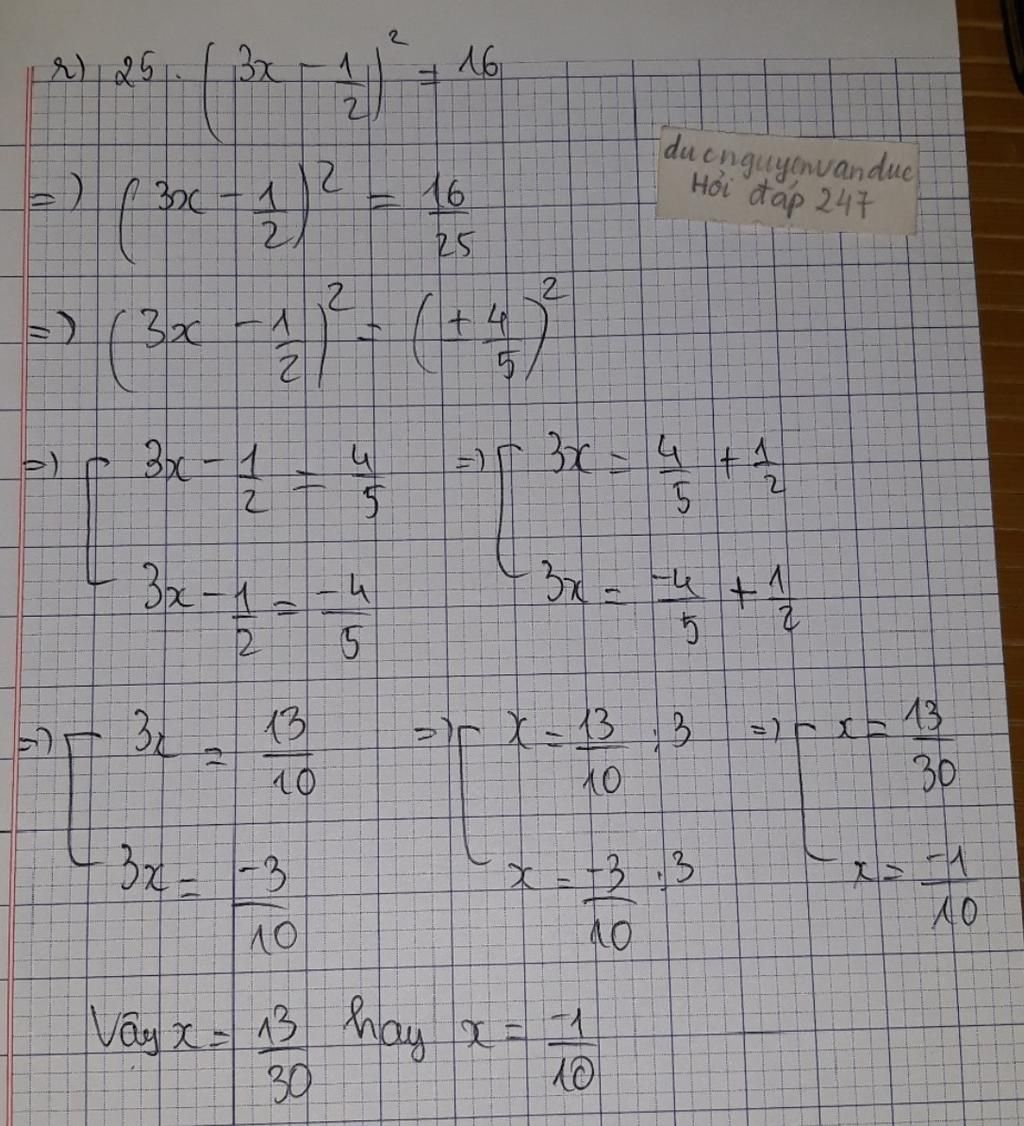 r) 25 . (3x - 1/2)² = 16
ducnguyenvanduc
Hỏi đáp 247
=> (3x - 1/2)² = 16/25
=> (3x - 1/2)² = (± 4/5)²
=> [ 3x - 1/2 = 4/5 => [ 3x = 4/5 + 1/2
3x - 1/2 = -4/5 3x = -4/5 + 1/2
=> [ 3x = 13/10 => [ x = 13/10 : 3 => [ x = 13/30
3x = -3/10 x = -3/10 : 3 x = -1/10
Vậy x = 13/30 hay x = -1/10